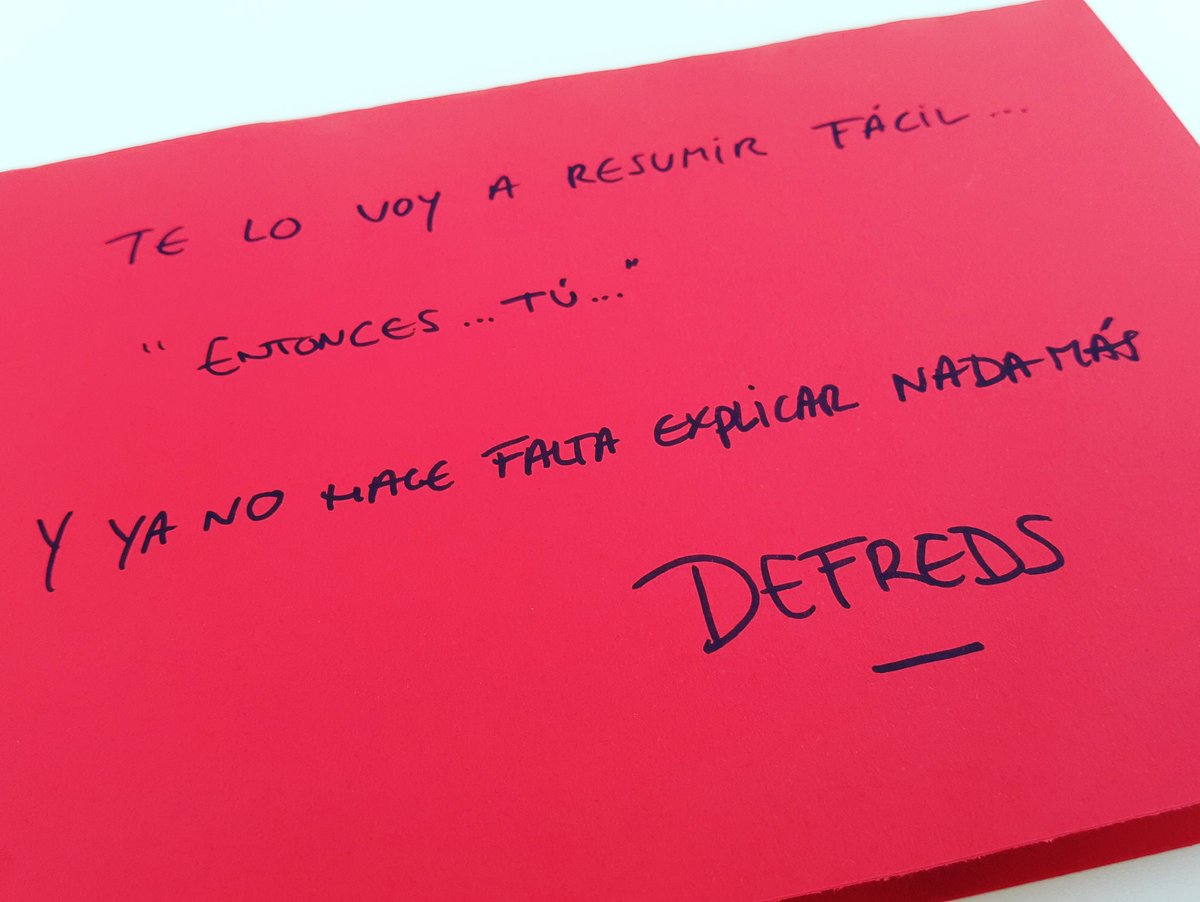 TE LO VOY A RESUMIR FÁCIL...
"ENTONCES...TÚ..."
Y YA NO HACE FALTA EXPLICAR NADA MÁS
DEFREDS